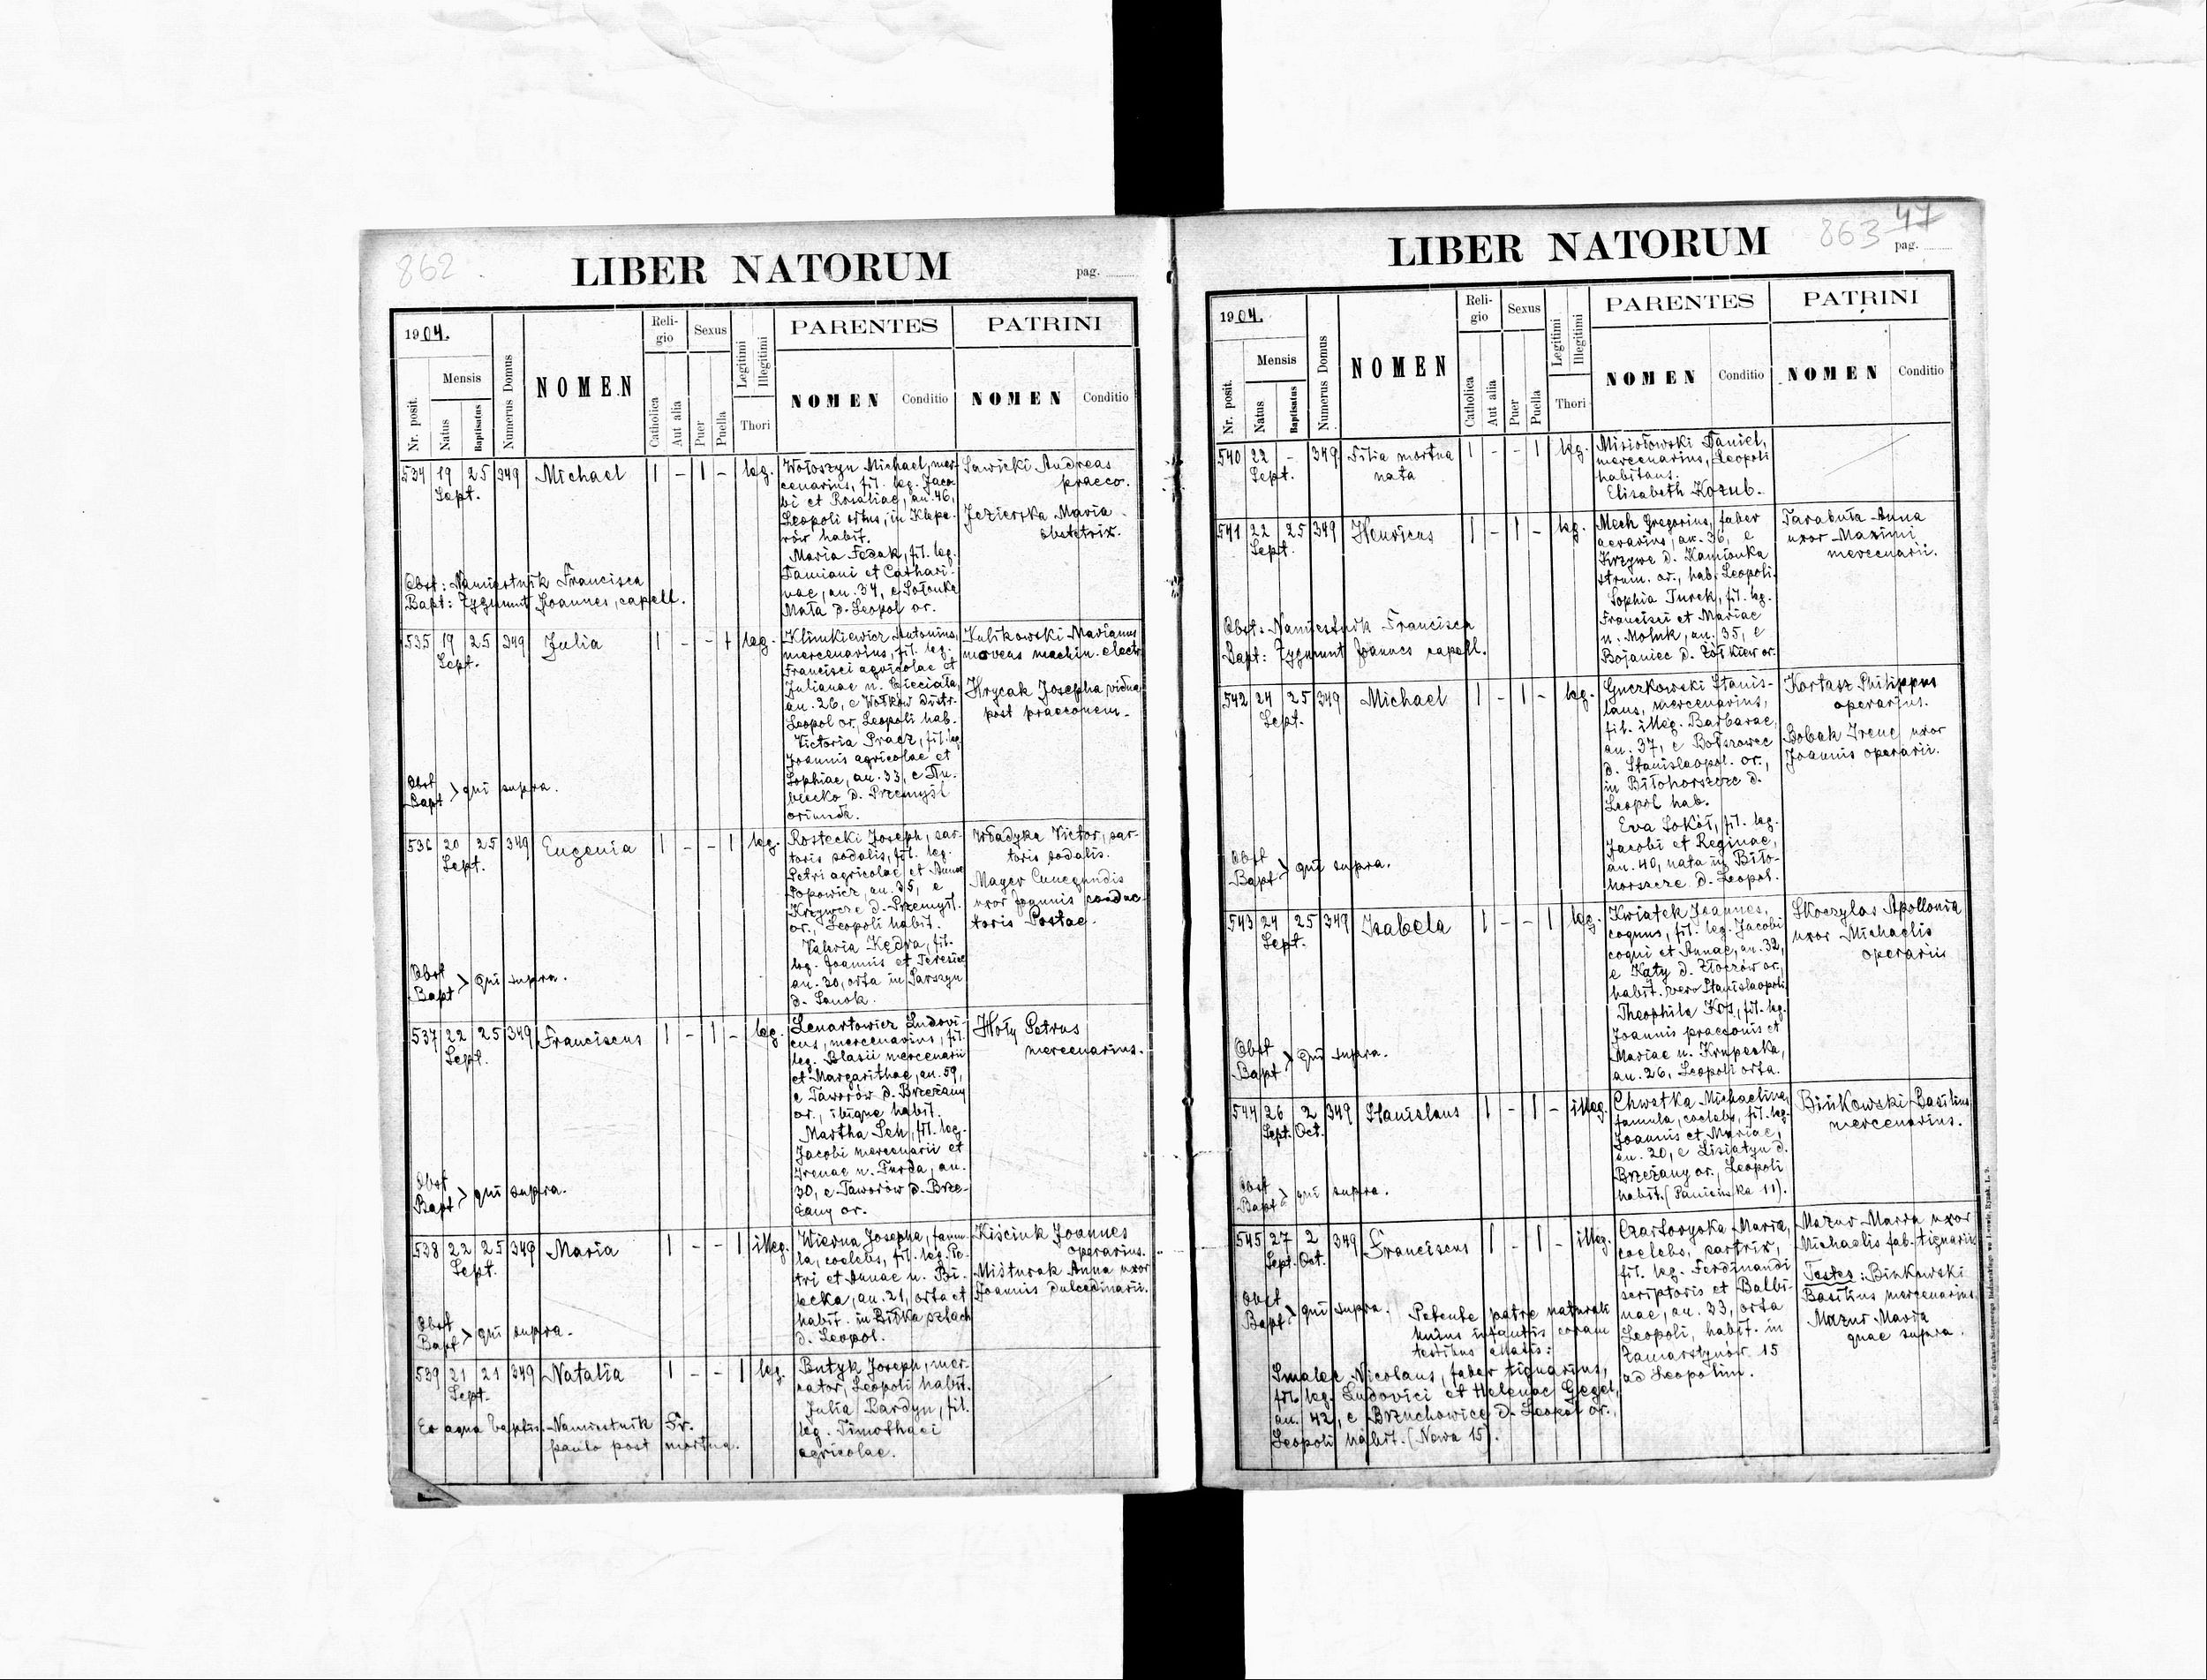 862
LIBER NATORUM
pag.
1904.
Reli-
gio
Sexus
Legitimi
Illegitimi
PARENTES
PATRINI
Nr. posit.
Mensis
Natus
Baptisatus
Numerus Domus
NOMEN
Catholica
Aut alia
Puer
Puella
Thori
NOMEN
Conditio
NOMEN
Conditio
534 19 25 349 Michael 1 - 1 - leg.
Sept.
Wołoszyn Michael, mer-
cenarius, fil. leg. Jaco-
bi et Rosaliae, an. 46,
Leopoli ortus, in Klepa-
rów habit.
Maria Fezak, fil. leg.
Damiani et Cathari-
nae, an. 34, e Sołonka
Mała d. Leopol or.
Sawicki Andreas
praeco.
Jezierska Maria
obstetrix.
Obst: Namiestnik Francisca
Bapt: Zygmunt Joannes, capell.
535 19 25 349 Julia 1 - - 1 leg.
Sept.
Klimkiewicz Antonius,
mercenarius, fil. leg.
Francisci agricolae et
Julianae n. Cieciała,
an. 26, e Wołków distr.
Leopol or., Leopoli hab.
Victoria Pracz, fil. leg.
Joannis agricolae et
Sophiae, an. 33, e Du-
biecko d. Przemyśl
oriunda.
Kulikowski Marianus
movens machin. electr.
Hrycak Josepha vidua
post praeconem.
Obst
Bapt > qui supra.
536 20 25 349 Eugenia 1 - - 1 leg.
Sept.
Rostecki Joseph, sar-
toris sodalis, fil. leg.
Petri agricolae et Annae
Popowicz, an. 35, e
Krzywcze d. Przemyśl.
or., Leopoli habit.
Valeria Kędra, fil.
leg. Joannis et Teresiae
an. 30, orta in
d. Sanok.
Władyka Victor, sar-
toris sodalis.
Mayer Cunegundis
uxor Joannis conduc-
toris Postae.
Obst
Bapt > qui supra.
537 22 25 349 Franciscus 1 - 1 - leg.
Sept.
Lenartowicz Ludovi-
cus, mercenarius, fil.
leg. Blasii mercenarii
et Margarithae, an. 59,
e Taworów d. Brzeżany
or., ibique habit.
Martha Seh, fil. leg.
Jacobi mercenarii et
Irenae n. Furda, an.
30, e Taworów d. Brze-
żany or.
Hoły Petrus
mercenarius.
Obst
Bapt > qui supra.
538 22 25 349 Maria 1 - - 1 illeg.
Sept.
Wierna Josepha, famu-
la, coelebs, fil. leg. Pe-
tri et Annae n. Bi-
an. 21, orta et
habit. in Biłka szlach
d. Leopol.
Kiściuk Joannes
operarius.
Misturak Anna uxor
Joannis dulcedinarii.
Obst
Bapt > qui supra.
539 21 21 349 Natalia 1 - - 1 leg.
Sept.
Butyk Joseph, mer-
cator, Leopoli habit.
Julia Bardyn, fil.
leg. Timothaei
agricolae.
Ex aqua baptis. Namiestnik Fr.
paulo post mortua.
863 47
LIBER NATORUM
pag.
1904.
Reli-
gio
Sexus
Legitimi
Illegitimi
PARENTES
PATRINI
Nr. posit.
Mensis
Natus
Baptisatus
Numerus Domus
NOMEN
Catholica
Aut alia
Puer
Puella
Thori
NOMEN
Conditio
NOMEN
Conditio
540 22 - 349 Filia mortua 1 - - 1 leg.
Sept. nata
Misiołowski Daniel,
mercenarius, Leopoli
habitans.
Elisabeth Kozub.
541 22 25 349 Henricus 1 - 1 - leg.
Sept.
Mech Gregorius, faber
aerarius, an. 36, e
Krzywe d. Kamionka
strum. or., hab. Leopoli.
Sophia Turek, fil. leg.
Francisci et Mariae
n. Molnk, an. 35, e
Bojaniec d. Żółkiew or.
Tarabuła Anna
uxor Maximi
mercenarii.
Obst: Namiestnik Francisca
Bapt: Zygmunt Joannes capell.
542 24 25 349 Michael 1 - 1 - leg.
Sept.
Guczkowski Stanis-
laus, mercenarius,
fil. illeg. Barbarae,
an. 37, e Bołszowce
d. Stanislaopol. or.,
in Biłohorszcze d.
Leopol hab.
Eva Sokół, fil. leg.
Jacobi et Reginae,
an. 40, nata in Biło-
horszcze d. Leopol.
Kartasz Philippus
operarius.
Bobak Irene uxor
Joannis operarii.
Obst
Bapt > qui supra.
543 24 25 349 Isabela 1 - - 1 leg.
Sept.
Kwiatek Joannes,
coquus, fil. leg. Jacobi
coqui et Annae, an. 32,
e Kąty d. Złoczów or.,
habit. vero Stanislaopoli
Theophila Kos, fil. leg.
Joannis praeconis et
Mariae n. Krupecka,
an. 26, Leopoli orta.
Skoczylas Apollonia
uxor Michaelis
operarii
Obst
Bapt > qui supra.
544 26 2 349 Stanislaus 1 - 1 - illeg.
Sept. Oct.
Chwstka Michaelina,
famula, coelebs, fil. leg.
Joannis et Mariae,
an. 20, e Lisiatyn d.
Brzeżany or., Leopoli
habit. (Panieńska 11).
Bińkowski Basilius
mercenarius.
Obst
Bapt > qui supra.
545 27 2 349 Franciscus 1 - 1 - illeg.
Sept. Oct.
Czartoryska Maria,
coelebs, sartrix,
fil. leg. Ferdinandi
scriptoris et Balbi-
nae, an. 33, orta
Leopoli, habit. in
Zamarstynów 15
ad Leopolim.
Mazur Maria uxor
Michaelis fab. tignarii
Testes: Binkowski
Basilius mercenarius
Mazur Maria
quae supra.
Obst
Bapt > qui supra.
Petente patre naturali
huius infantis coram
testibus citatis:
Smalec Nicolaus, faber tignarius,
fil. leg. Ludovici et Helenae Gegel,
an. 42, e Brzuchowice d. Leopol or.,
Leopoli habit. (Nowa 15).